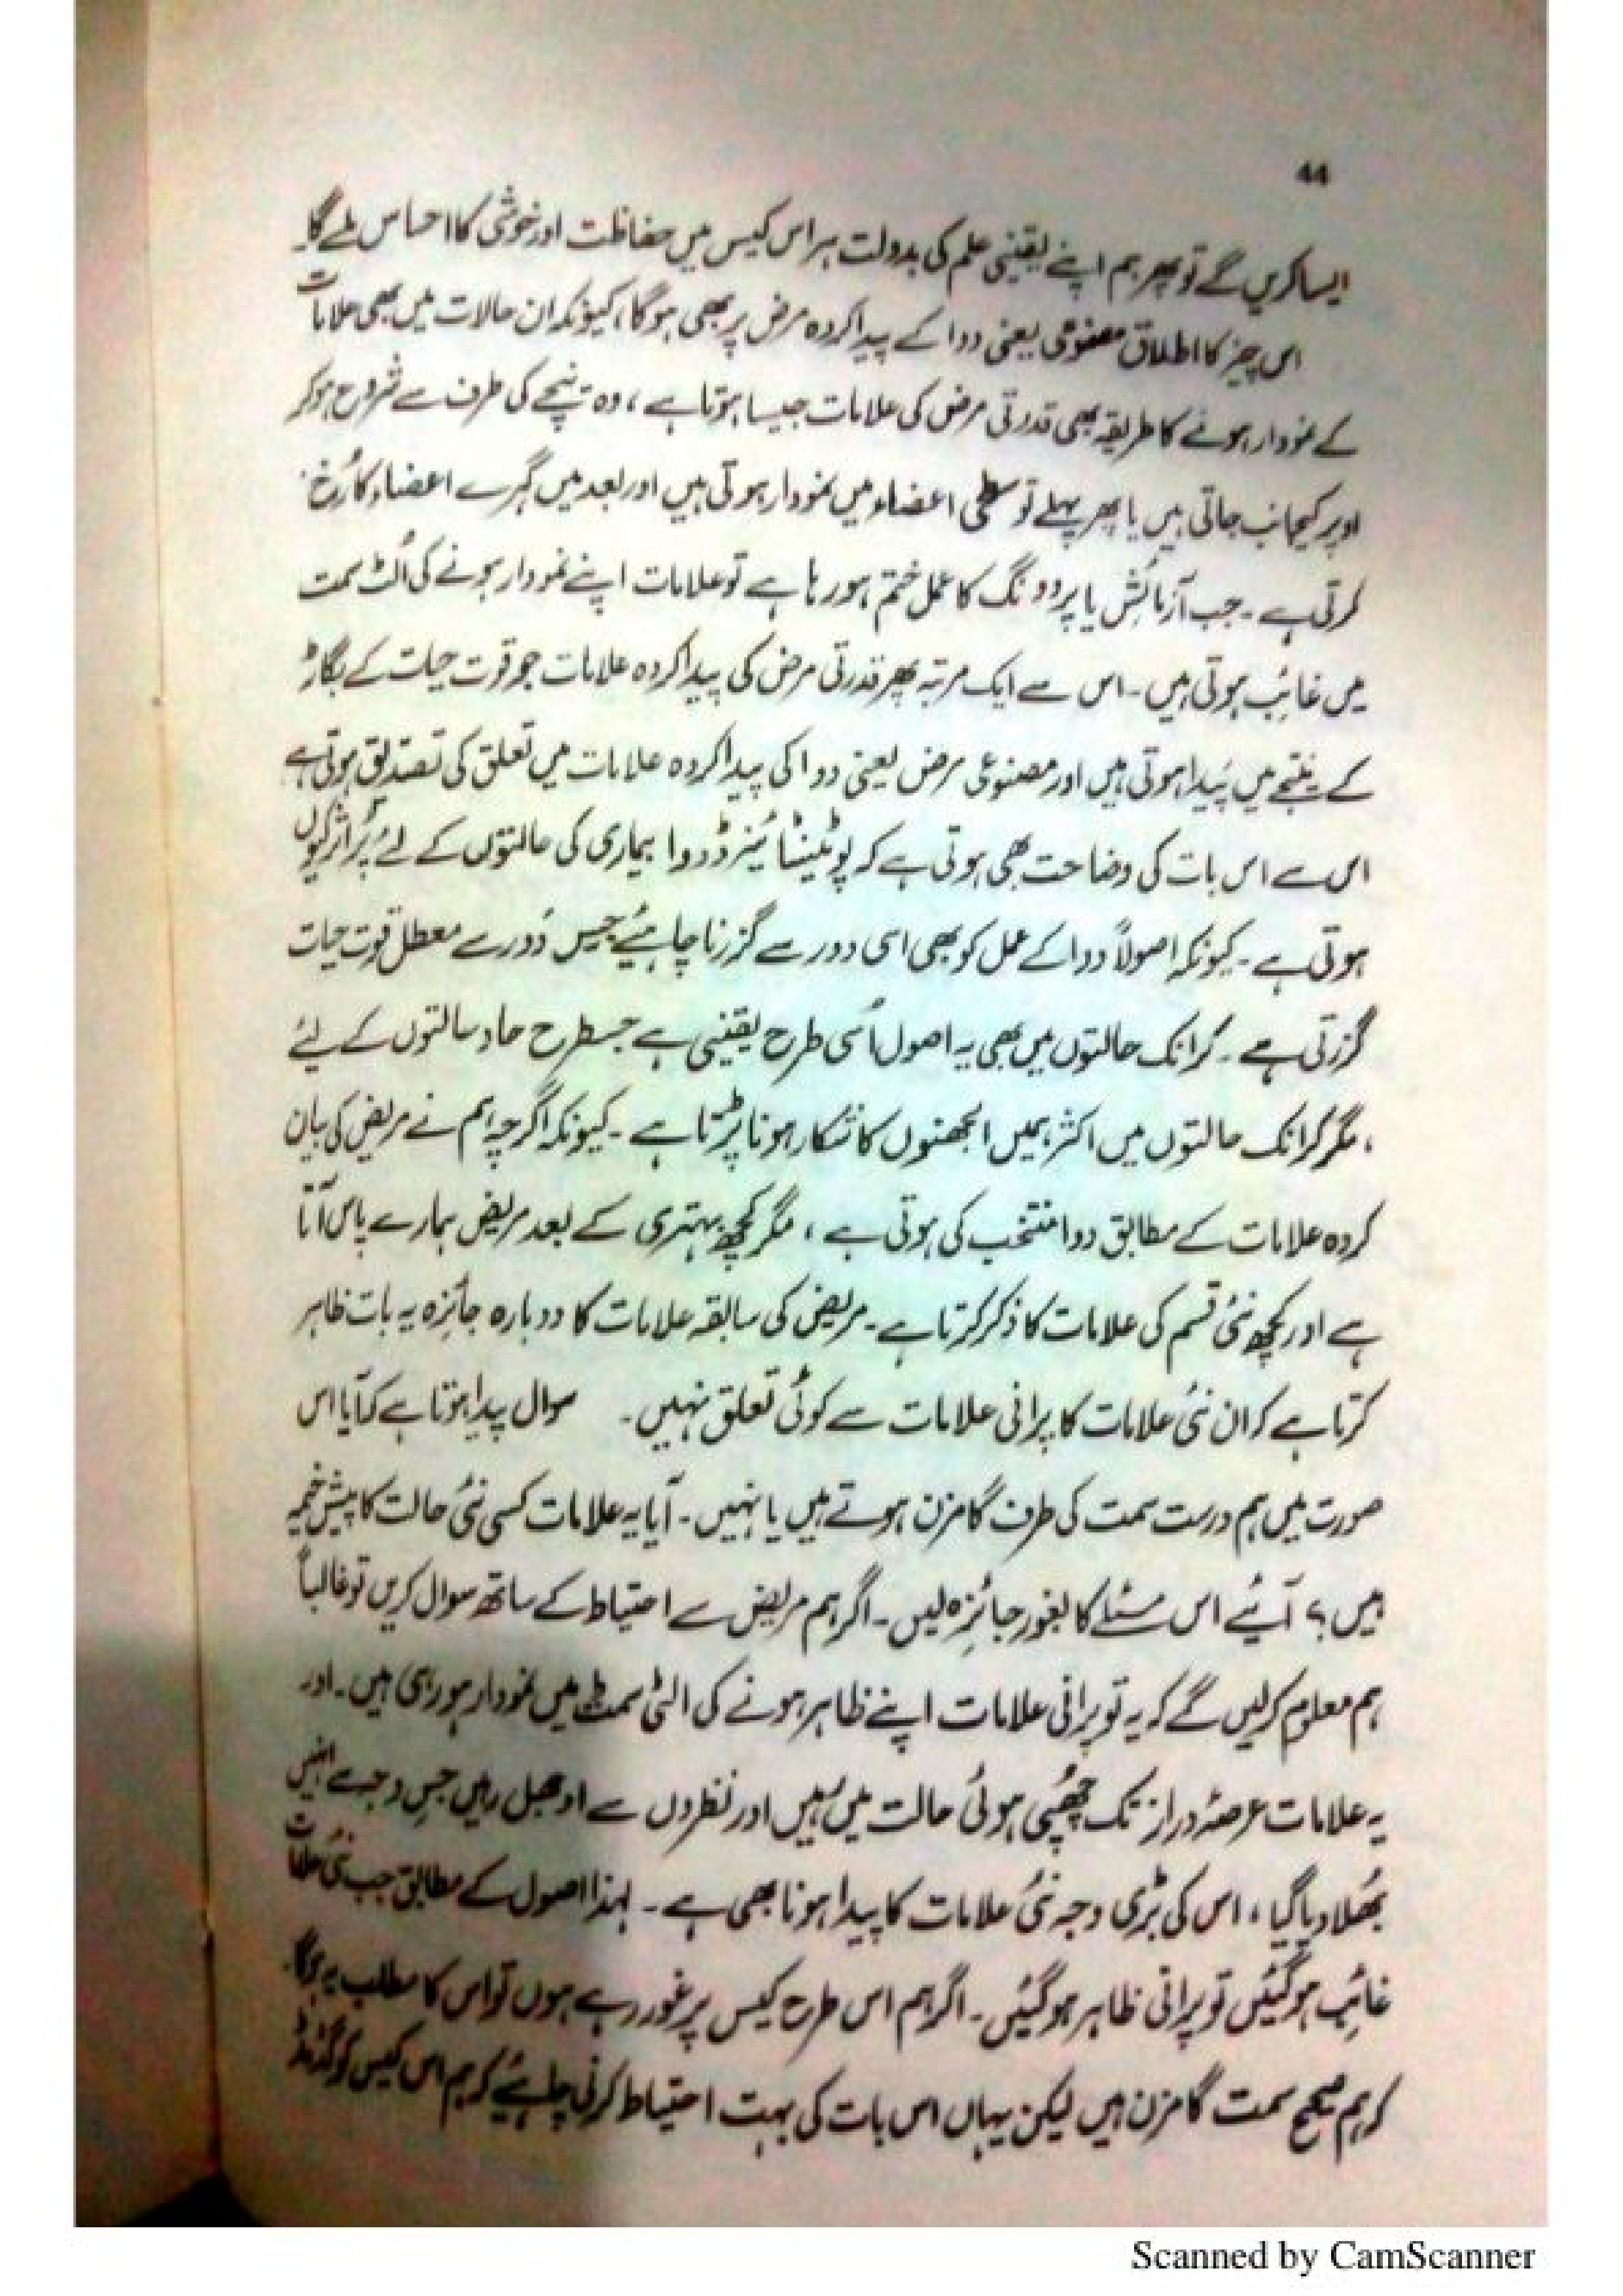 44
ایسا کریں گے تو پھر ہم اپنے یقینی علم کی بدولت ہر اس کیس میں حفاظت اور خوشی کا احساس ملے گا۔
اس چیز کا اطلاق مصنوعی یعنی دوا کے پیدا کردہ مرض پر بھی ہو گا، کیونکہ ان حالات میں بھی علامات
کے نمودار ہونے کا طریقہ بھی قدرتی مرض کی علامات جیسا ہوتا ہے، وہ نیچے کی طرف سے شروع ہو کر
اوپر کیجانب جاتی ہیں یا پھر پہلے تو سطحی اعضاء میں نمودار ہوتی ہیں اور بعد میں گہرے اعضاء کا رُخ
کرتی ہے۔ جب آزمائش یا پروونگ کا عمل ختم ہو رہا ہے تو علامات اپنے نمودار ہونے کی اُلٹ سمت
میں غائب ہوتی ہیں۔ اس سے ایک مرتبہ پھر قدرتی مرض کی پیدا کردہ علامات جو قوت حیات کے بگاڑ
کے نتیجے میں پیدا ہوتی ہیں اور مصنوعی مرض یعنی دوا کی پیدا کردہ علامات میں تعلق کی تصدیق ہوتی ہے
اس سے اس بات کی وضاحت بھی ہوتی ہے کہ پوٹینٹائیزڈ دوا بیماری کی حالتوں کے لئے پُر اثر کیوں
ہوتی ہے۔ کیونکہ اصولاً دوا کے عمل کو بھی اسی دور سے گزرنا چاہئیے جیس دَور سے معطل قوت حیات
گزرتی ہے۔ کرانک حالتوں میں بھی یہ اصول اُسی طرح یقینی ہے جسطرح حاد حالتوں کے لئے
، مگر کرانک حالتوں میں اکثر ہمیں الجھنوں کا شکار ہونا پڑتا ہے۔ کیونکہ اگرچہ ہم نے مریض کی بیان
کردہ علامات کے مطابق دوا منتخب کی ہوتی ہے، مگر کچھ بہتری کے بعد مریض ہمارے پاس آتا
ہے اور کچھ نئی قسم کی علامات کا ذکر کرتا ہے۔ مریض کی سابقہ علامات کا دوبارہ جائزہ یہ بات ظاہر
کرتا ہے کہ ان نئی علامات کا پرانی علامات سے کوئی تعلق نہیں۔ سوال پیدا ہوتا ہے کہ آیا اس
صورت میں ہم درست سمت کی طرف گامزن ہوتے ہیں یا نہیں۔ آیا یہ علامات کسی نئی حالت کا پیش خیمہ
ہیں؟ آئیے اس مسئلے کا بغور جائزہ لیں۔ اگر ہم مریض سے احتیاط کے ساتھ سوال کریں تو غالباً
ہم معلوم کر لیں گے کہ یہ تو پرانی علامات اپنے ظاہر ہونے کی الٹی سمت میں نمودار ہو رہی ہیں۔ اور
یہ علامات عرصۂ دراز تک چھُپی ہوئی حالت میں رہیں اور نظروں سے اوجھل رہیں جس وجہ سے انہیں
بھُلا دیا گیا، اس کی بڑی وجہ نئی علامات کا پیدا ہونا بھی ہے۔ لہذا اصول کے مطابق جب نئی علامات
غائب ہو گئیں تو پرانی ظاہر ہو گئیں۔ اگر ہم اس طرح کیس پر غور رہے ہوں تو اس کا مطلب یہ ہو گا۔
کہ ہم صحیح سمت گامزن ہیں لیکن یہاں اس بات کی بہت احتیاط کرنی چاہئے کہ ہم اس کیس کو گڈمڈ
Scanned by CamScanner